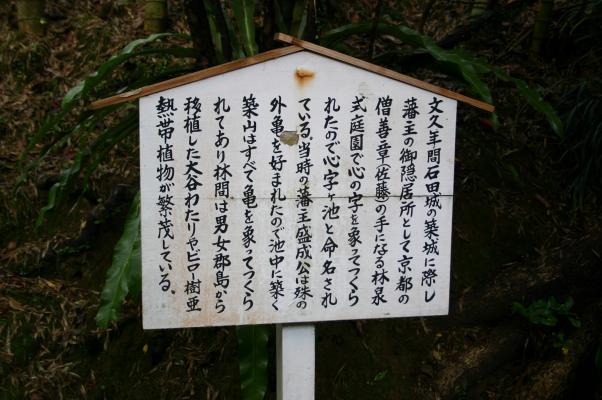 文久年間石田城の築城に際し
藩主の御隠居所として京都の
僧善章(佐藤)の手になる林泉
式庭園で心の字を象ってつくら
れたので心字ヶ池と命名され
ている。当時の藩主盛成公は殊の
外亀を好まれたので池中に築く
築山はすべて亀を象ってつくら
れてあり林間は男女郡島から
移植した大谷わたりやビロー樹亜
熱帯植物が繁茂している。